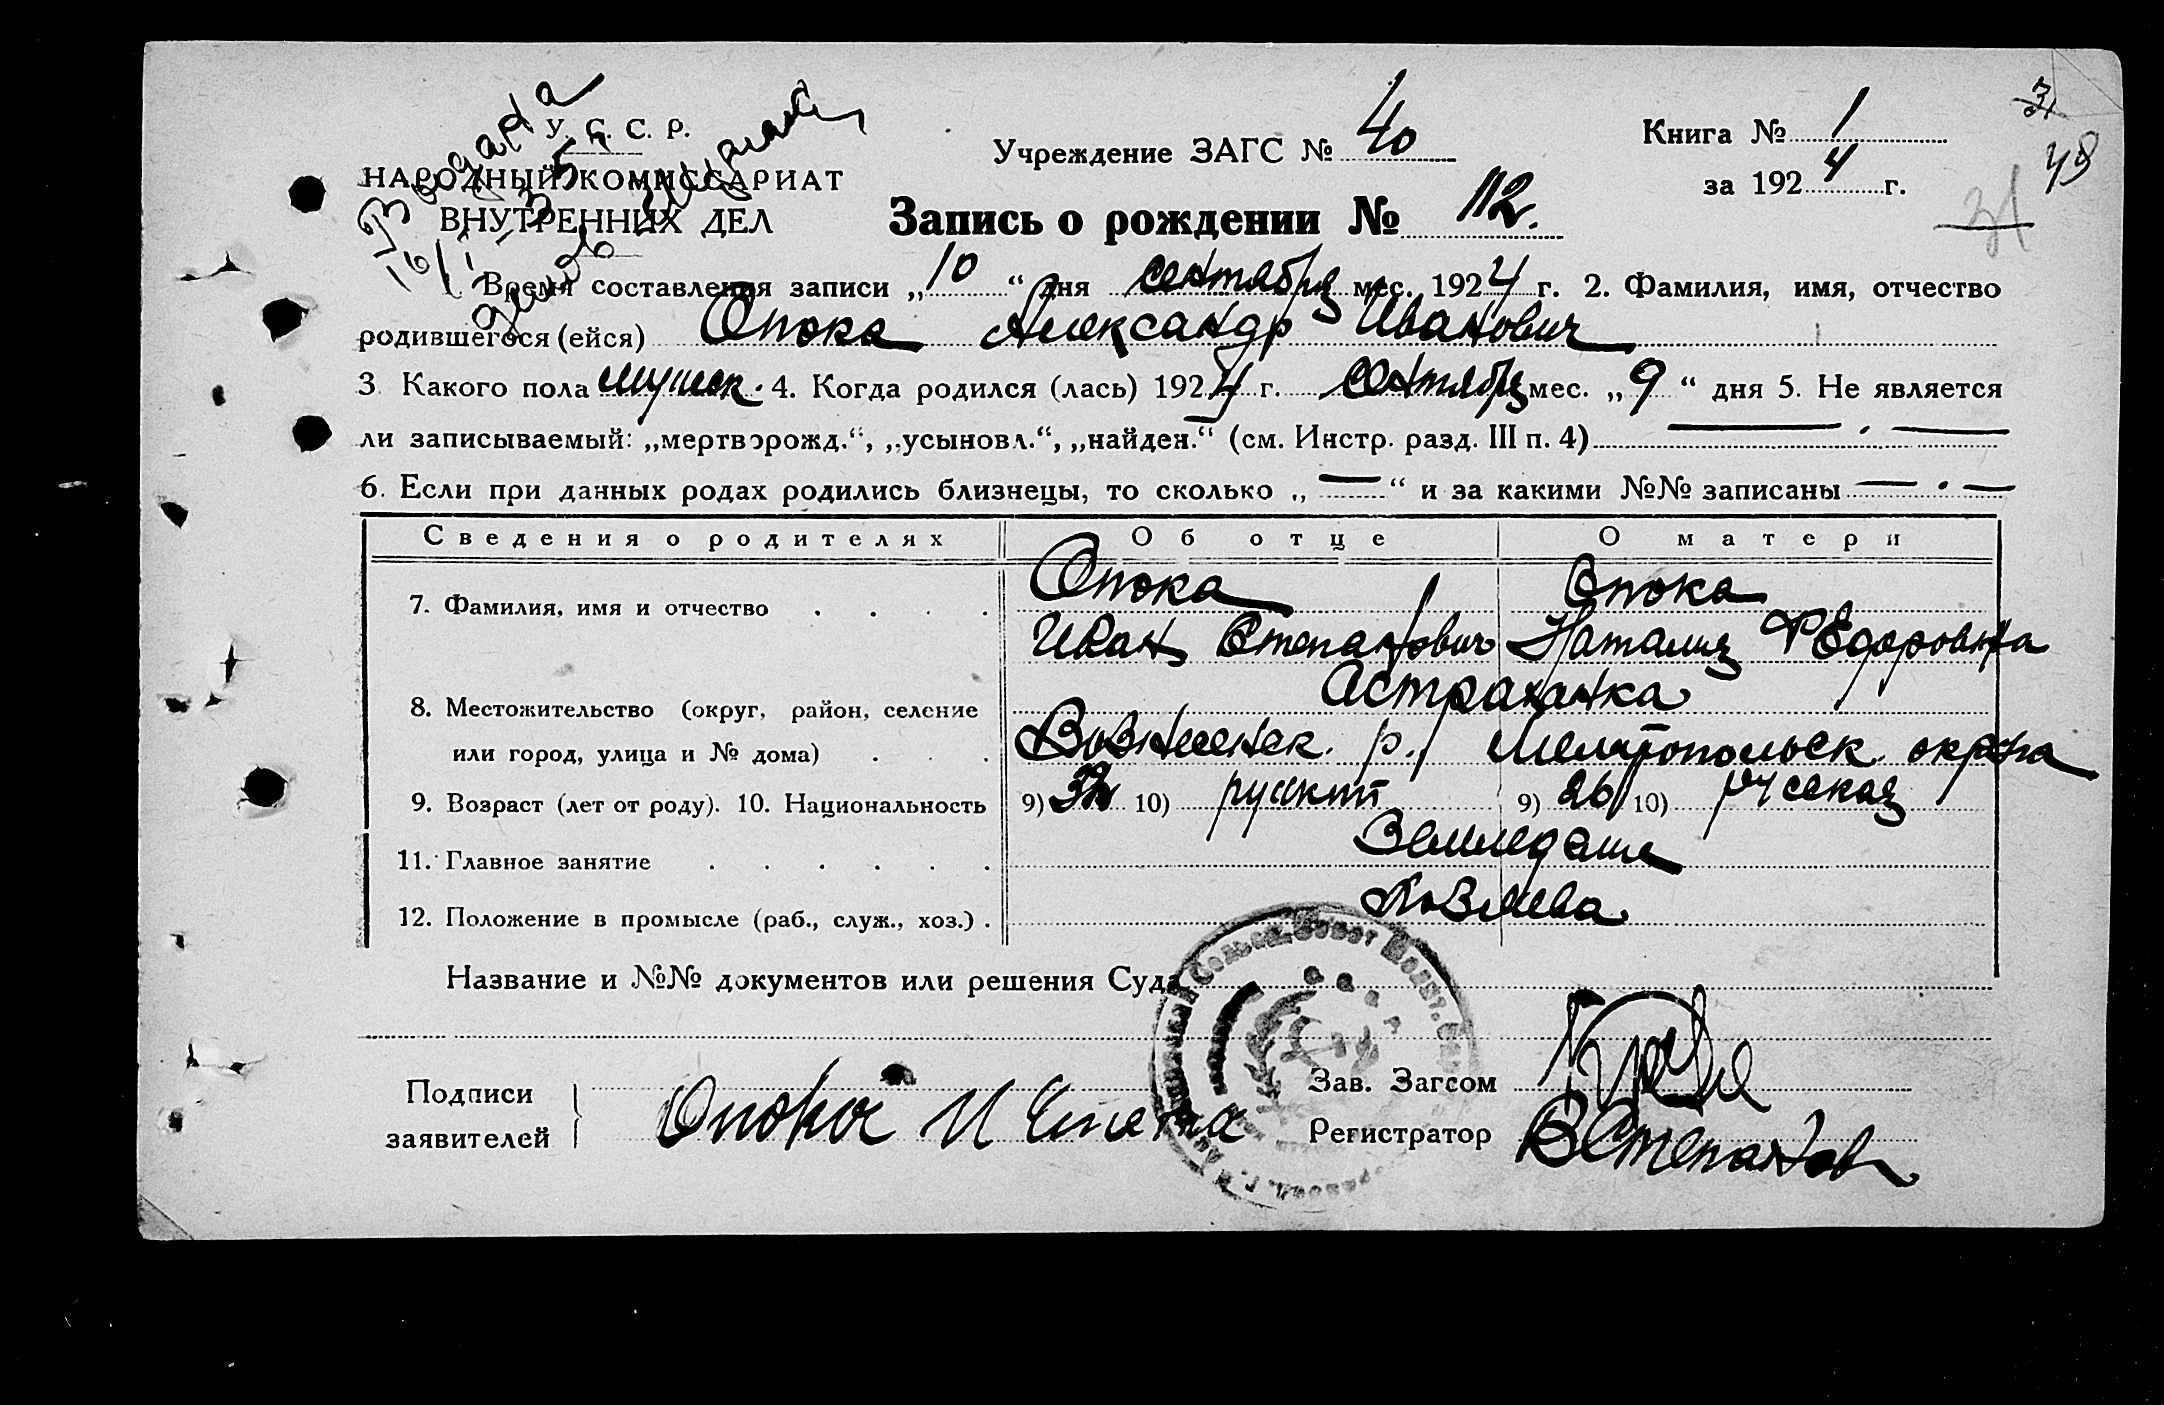 У. С. С. Р.
НАРОДНЫЙ КОМИССАРИАТ
ВНУТРЕННИХ ДЕЛ
Учреждение ЗАГС № 40
Книга № 1
за 1924 г.
48
31
Запись о рождении № 112.
1. Время составления записи „10“ дня сентября мес. 1924 г. 2. Фамилия, имя, отчество
родившегося (ейся) Опока Александр Иванович
3. Какого пола мужск. 4. Когда родился (лась) 1924 г. сентября мес. „9“ дня 5. Не является
ли записываемый: „мертворожд.“, „усыновл.“, „найден.“ (см. Инстр. разд. III п. 4) — . —
6. Если при данных родах родились близнецы, то сколько „—“ и за какими №№ записаны — . —
Сведения о родителях Об отце О матери
7. Фамилия, имя и отчество . . . . Опока Опока
Иван Степанович Наталия Федоровна
Астраханка
8. Местожительство (округ, район, селение
или город, улица и № дома) . . . Вознесенск. р. Мелитопольск. округа
9. Возраст (лет от роду). 10. Национальность 9) 10) русский 9) 26 10) русская
11. Главное занятие . . . . . .
12. Положение в промысле (раб., служ., хоз.) . Хозяева
Название и №№ документов или решения Суда
Подписи
заявителей
Опока И
Зав. Загсом
Регистратор ВСтепанов